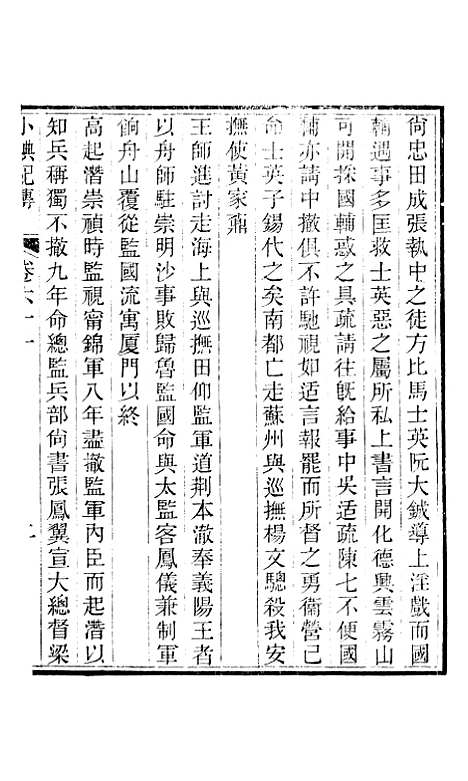 尙忠田成張執中之徒方比馬士英阮大鋮導上淫戲而國
輔遇事多匡救士英惡之屬所私上書言開化德興雲霧山
可開採國輔惑之具疏請往旣給事中吳适疏陳七不便國
輔亦請中撤俱不許馳視如适言報罷而所督之勇衞營已
命士英子錫代之矣南都亡走蘇州與巡撫楊文驄殺我安
撫使黃家鼒
王師進討走海上與巡撫田仰監軍道荆本澈奉義陽王者
以舟師駐崇明沙事敗歸魯監國命與太監客鳳儀兼制軍
餉舟山覆從監國流寓厦門以終
高起潛崇禎時監視甯錦軍八年盡撤監軍內臣而起潛以
知兵稱獨不撤九年命總監兵部尙書張鳳翼宣大總督梁
小腆紀傳 卷六十一 二